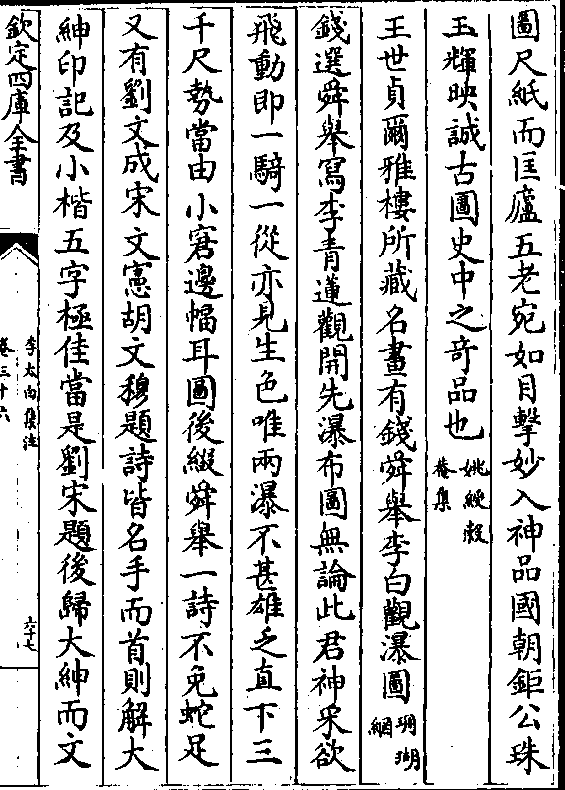 圖尺紙而匡廬五老宛如目擊妙入神品國朝鉅公珠
玉輝映誠古圖史中之竒品也姚綬榖菴集
王世貞爾雅樓所藏名畫有錢舜舉李白觀瀑圖珊瑚網
錢選舜舉寫李青蓮觀開先瀑布圖無論此君神采欲
飛動即一騎一從亦見生色唯兩瀑不甚雄乏直下三
千尺勢當由小窘邊幅耳圖後綴舜舉一詩不免蛇足
又有劉文成宋文憲胡文穆題詩皆名手而首則解大
紳印記及小楷五字極佳當是劉宋題後歸大紳而文
欽定四庫全書
李太白集注
卷三十六
六十七